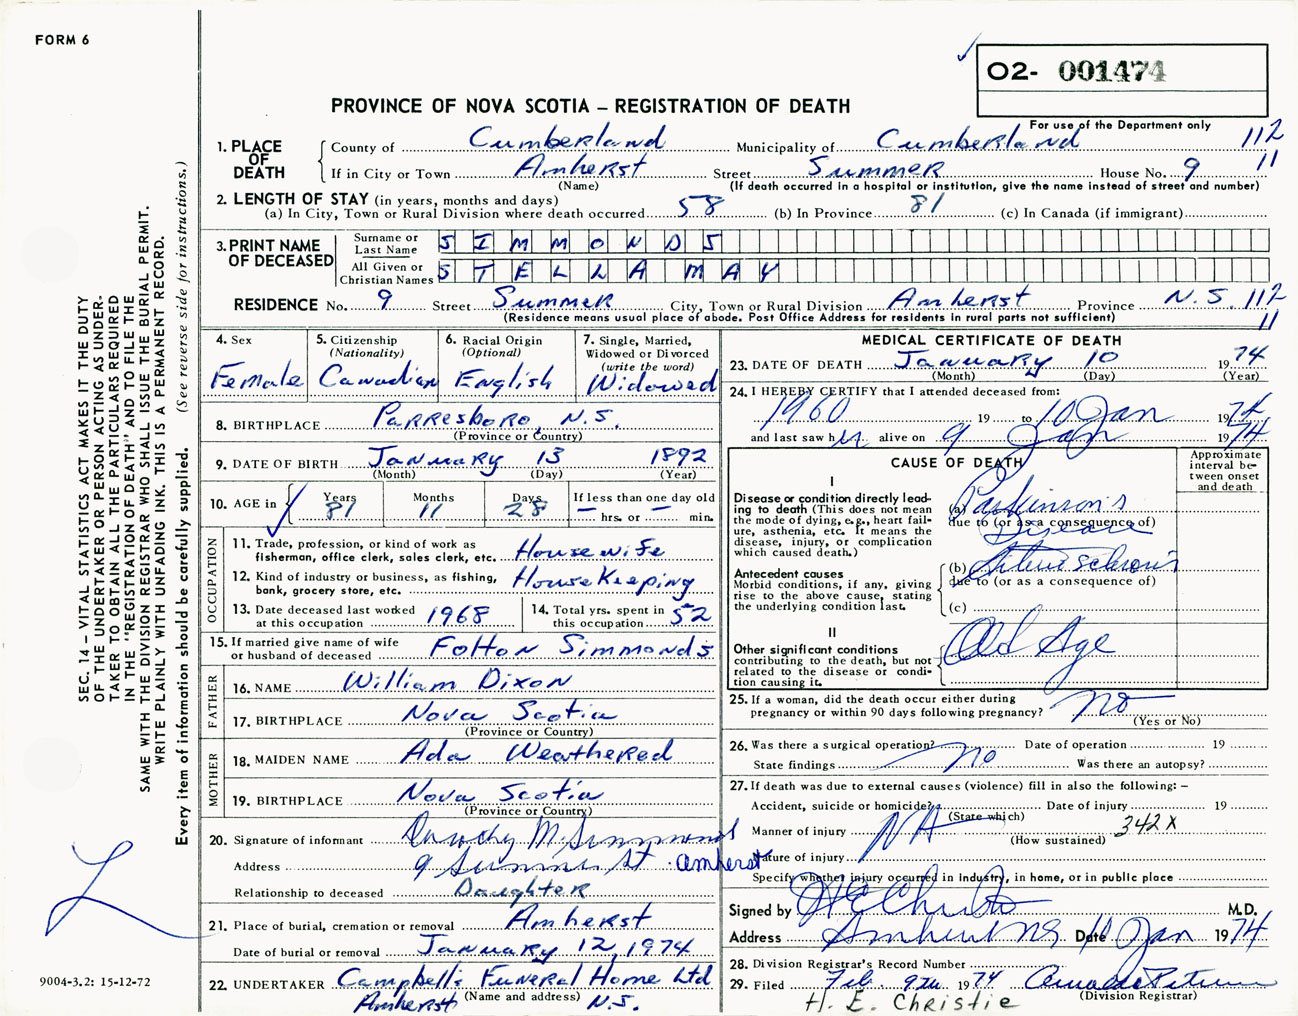 FORM 6
O2- 001474
PROVINCE OF NOVA SCOTIA – REGISTRATION OF DEATH
For use of the Department only
1. PLACE OF DEATH
County of Cumberland Municipality of Cumberland 112
If in City or Town Amherst Street Summer House No. 9 11
(Name) (If death occurred in a hospital or institution, give the name instead of street and number)
2. LENGTH OF STAY (in years, months and days)
(a) In City, Town or Rural Division where death occurred 58 (b) In Province 81 (c) In Canada (if immigrant)
3. PRINT NAME OF DECEASED
Surname or Last Name SIMMONDS
All Given or Christian Names STELLA MAY
RESIDENCE No. 9 Street Summer City, Town or Rural Division Amherst Province N.S. 112
(Residence means usual place of abode. Post Office Address for residents in rural parts not sufficient) 11
4. Sex
Female
5. Citizenship
(Nationality)
Canadian
6. Racial Origin
(Optional)
English
7. Single, Married,
Widowed or Divorced
(write the word)
Widowed
8. BIRTHPLACE Parrsboro, N.S.
(Province or Country)
9. DATE OF BIRTH January 13 1892
(Month) (Day) (Year)
10. AGE in Years Months Days If less than one day old
81 11 28 — hrs. or — min.
OCCUPATION
11. Trade, profession, or kind of work as
fisherman, office clerk, sales clerk, etc. Housewife
12. Kind of industry or business, as fishing,
bank, grocery store, etc. HouseKeeping
13. Date deceased last worked
at this occupation 1968
14. Total yrs. spent in
this occupation 52
15. If married give name of wife
or husband of deceased Folton Simmonds
FATHER
16. NAME William Dixon
17. BIRTHPLACE Nova Scotia
(Province or Country)
MOTHER
18. MAIDEN NAME Ada Weathered
19. BIRTHPLACE Nova Scotia
(Province or Country)
20. Signature of informant Dorothy M. Simmonds
Address 9 Summer St. Amherst
Relationship to deceased Daughter
21. Place of burial, cremation or removal Amherst
Date of burial or removal January 12, 1974
22. UNDERTAKER Campbell's Funeral Home Ltd
(Name and address)
Amherst N.S.
MEDICAL CERTIFICATE OF DEATH
23. DATE OF DEATH January 10 1974
(Month) (Day) (Year)
24. I HEREBY CERTIFY that I attended deceased from:
1960 19 to 10 Jan 1974
and last saw her alive on 9 Jan 1974
CAUSE OF DEATH
Approximate
interval be-
tween onset
and death
I
Disease or condition directly lead-
ing to death (This does not mean
the mode of dying, e.g., heart fail-
ure, asthenia, etc. It means the
disease, injury, or complication
which caused death.)
(a) Parkinson's
due to (or as a consequence of)
Disease
Antecedent causes
Morbid conditions, if any, giving
rise to the above cause, stating
the underlying condition last.
(b)
due to (or as a consequence of)
(c)
II
Other significant conditions
contributing to the death, but not
related to the disease or condi-
tion causing it.
Old Age
25. If a woman, did the death occur either during
pregnancy or within 90 days following pregnancy? no
(Yes or No)
26. Was there a surgical operation? no Date of operation 19
State findings Was there an autopsy?
27. If death was due to external causes (violence) fill in also the following: –
Accident, suicide or homicide? Date of injury 19
(State which)
Manner of injury NA 342X
(How sustained)
Nature of injury
Specify whether injury occurred in Industry, in home, or in public place
Signed by H E Christie M.D.
Address Amherst NS Date 11 Jan 1974
28. Division Registrar's Record Number
29. Filed Feb. 9th 1974
(Division Registrar)
H. E. Christie
SEC. 14 – VITAL STATISTICS ACT MAKES IT THE DUTY
OF THE UNDERTAKER OR PERSON ACTING AS UNDER-
TAKER TO OBTAIN ALL THE PARTICULARS REQUIRED
IN THE "REGISTRATION OF DEATH" AND TO FILE THE
SAME WITH THE DIVISION REGISTRAR WHO SHALL ISSUE THE BURIAL PERMIT.
WRITE PLAINLY WITH UNFADING INK. THIS IS A PERMANENT RECORD.
Every item of information should be carefully supplied. (See reverse side for instructions.)
9004-3.2: 15-12-72